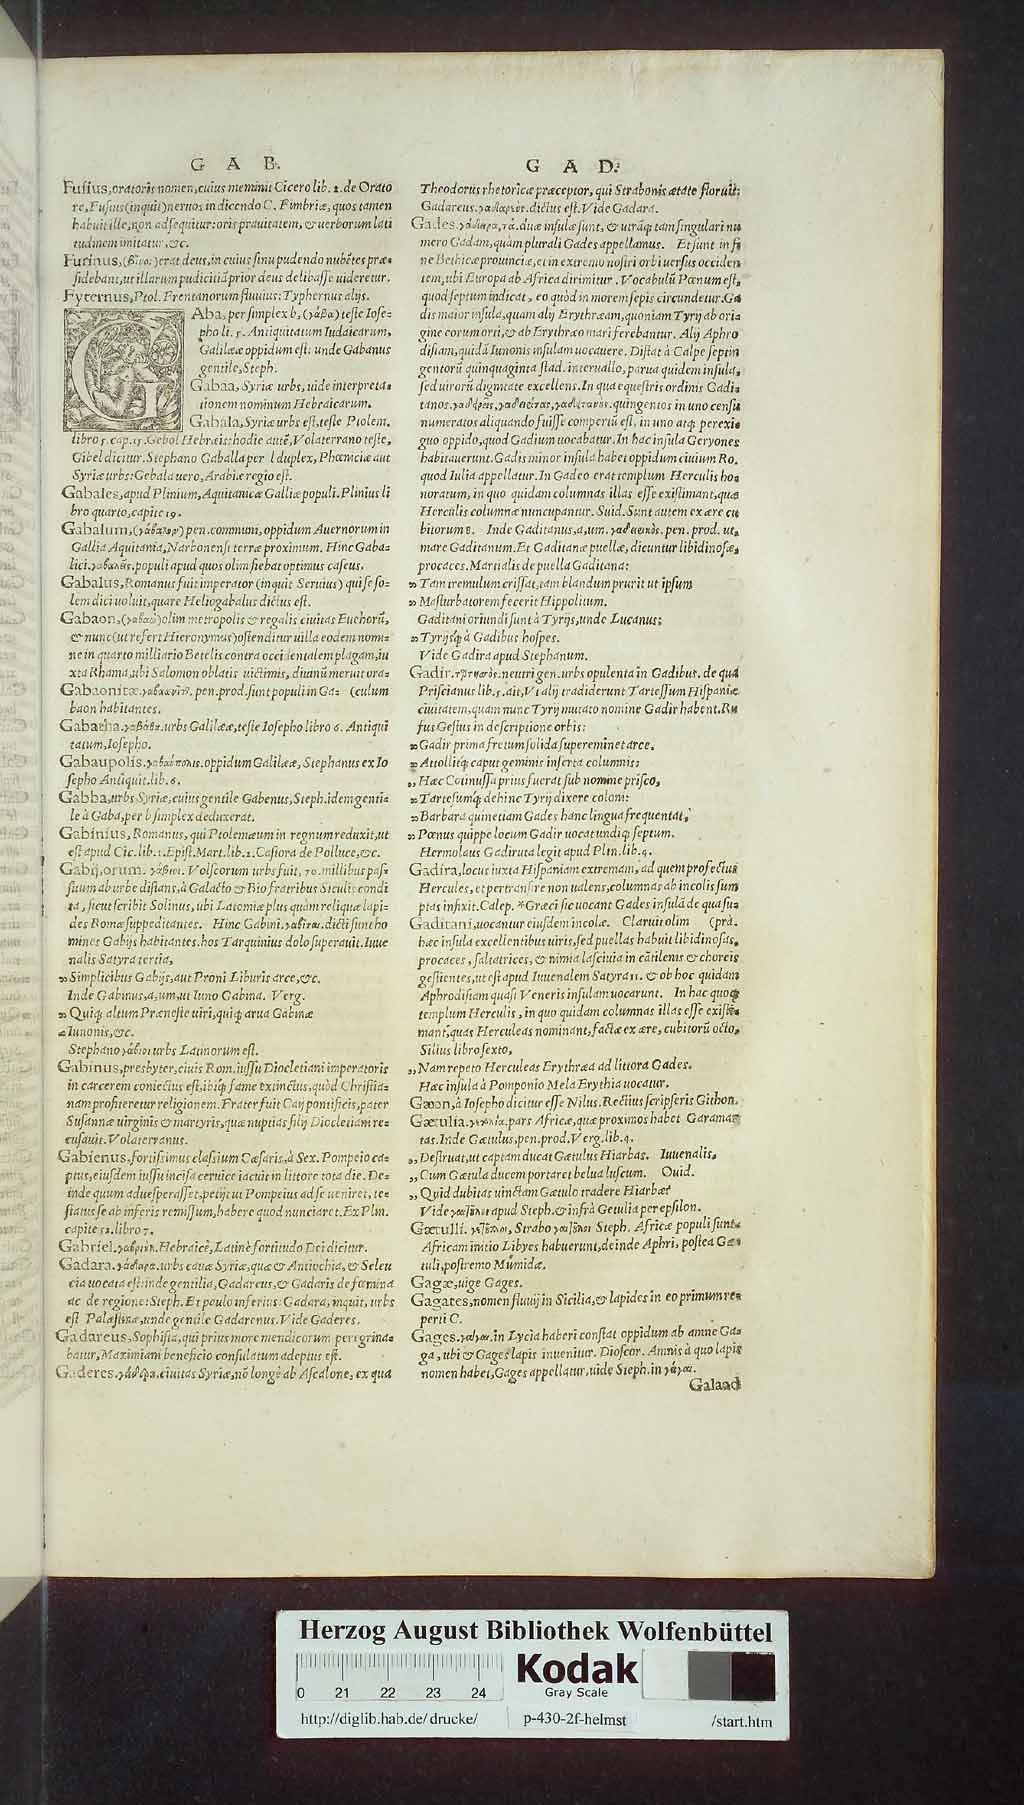 G A B.
Fusius, oratoris nomen, cuius meminit Cicero lib. 2. de Orato
re, Fusius (inquit) neruos in dicendo C. Fimbriæ, quos tamen
habuit ille, non adsequitur: oris prauitatem, & uerborum lati
tudinem imitatur, &c.
Futinus, erat deus, in cuius sinu pudendo nubētes præ=
sidebant, ut illarum pudicitiā prior deus delibasse uideretur.
Fyternus, Ptol. Frentanorum fluuius: Typhernus alijs.
GAba, per simplex b, (γάβα) teste Iose=
pho li. 5. Antiquitatum Iudaicarum,
Galilææ oppidum est: unde Gabanus
gentile, Steph.
Gabaa, Syriæ urbs, uide interpreta=
tionem nominum Hebraicarum.
Gabala, Syriæ urbs est, teste Ptolem.
libro 5. cap. 15. Gebol Hebræis: hodie autē, Volaterrano teste,
Gibel dicitur. Stephano Gaballa per l duplex, Phœniciæ aut
Syriæ urbs: Gebala uero, Arabiæ regio est.
Gabales, apud Plinium, Aquitanicæ Galliæ populi. Plinius li
bro quarto, capite 19.
Gabalum, pen. communi, oppidum Auernorum in
Gallia Aquitania, Narbonensi terræ proximum. Hinc Gaba=
lici. populi apud quos olim fiebat optimus caseus.
Gabalus, Romanus fuit imperator (inquit Seruius) qui se so=
lem dici uoluit, quare Heliogabalus dictus est.
Gabaon, (γαβαὼν) olim metropolis & regalis ciuitas Euchorū,
& nunc (ut refert Hieronymus) ostenditur uilla eodem nomi=
ne in quarto milliario Betelis contra occidentalem plagam, iu
xta Rhama, ubi Salomon oblatis uictimis, diuinū meruit ora=
Gabaonitæ. pen. prod. sunt populi in Ga= (culum
baon habitantes.
Gabatha. γαβάθα. urbs Galilææ, teste Iosepho libro 6. Antiqui
tatum, Iosepho.
Gabaupolis. oppidum Galilææ, Stephanus ex Io
sepho Antiquit. lib. 6.
Gabba, urbs Syriæ, cuius gentile Gabenus, Steph. idem genti=
le à Gaba, per b simplex deduxerat.
Gabinius, Romanus, qui Ptolemæum in regnum reduxit, ut
est apud Cic. lib. 1. Epist. Mart. lib. 2. Castora de Polluce, &c.
Gabij, orum. γάβιοι. Volscorum urbs fuit, 70. millibus pas=
suum ab urbe distans, à Galacto & Bio fratribus Siculis condi
ta, sicut scribit Solinus, ubi Latomiæ plus quàm reliquæ lapi=
des Romæ suppeditantes. Hinc Gabini. dicti sunt ho
mines Gabijs habitantes. hos Tarquinius dolo superauit. Iuue
nalis Satyra tertia,
„Simplicibus Gabijs, aut Proni Tiburis arce, &c.
Inde Gabinus, a, um, ut Iuno Gabina. Verg.
„Quiq; altum Præneste uiri, quiq; arua Gabinæ
„Iunonis, &c.
Stephano γάβιοι urbs Latinorum est.
Gabinus, presbyter, ciuis Rom. iussu Diocletiani imperatoris
in carcerem coniectus est, ibiq; fame extinctus, quòd Christia=
nam profiteretur religionem. Frater fuit Caij pontificis, pater
Susannæ uirginis & martyris, quæ nuptias filij Diocletiani re=
cusauit. Volaterranus.
Gabienus, fortissimus classium Cæsaris, à Sex. Pompeio ca=
ptus, eiusdem iussu incisa ceruice iacuit in littore tota die. De=
inde quum aduesperasset, petijt ut Pompeius ad se ueniret, te=
status se ab inferis remissum, habere quod nunciaret. Ex Plin.
capite 52. libro 7.
Gabriel. γαβριὴλ. Hebraicè, Latinè fortitudo Dei dicitur.
Gadara. γάδαρα. urbs cauæ Syriæ, quæ & Antiochia, & Seleu
cia uocata est: inde gentilia, Gadareus, & Gadaris de fœmina
ac de regione: Steph. Et paulo inferius: Gadara, inquit, urbs
est Palæstinæ, unde gentile Gadarenus. Vide Gaderes.
Gadareus, Sophista, qui prius more mendicorum peregrina=
batur, Maximiani beneficio consulatum adeptus est.
Gaderes. ciuitas Syriæ, nō longè ab Ascalone, ex qua
G A D.
Theodorus rhetoricæ præceptor, qui Strabonis ætate floruit:
Gadareus. dictus est. Vide Gadara.
Gades. γάδειρα, τά. duæ insulæ sunt, & utraq; tam singulari nu
mero Gadam, quàm plurali Gades appellamus. Et sunt in fi
ne Bethicæ prouinciæ, et in extremo nostri orbi uersus occiden
tem, ubi Europa ab Africa dirimitur. Vocabulū Pœnum est,
quod septum indicat, eo quòd in morem sepis circundetur. Ga
dis maior insula, quam alij Erythræam, quoniam Tyrij ab ori
gine eorum orti, & ab Erythræo mari ferebantur. Alij Aphro
disiam, quidā Iunonis insulam uocauere. Distat à Calpe septin
gentorū quinquaginta stad. interuallo, parua quidem insula,
sed uirorū dignitate excellens. In qua equestris ordinis Gadi=
tanos. quingentos in uno censu
numeratos aliquando fuisse compertū est, in uno atq; perexi=
guo oppido, quod Gadium uocabatur. In hac insula Geryones
habitauerunt. Gadis minor insula habet oppidum ciuium Ro.
quod Iulia appellatur. In Gadeo erat templum Herculis ho=
noratum, in quo quidam columnas illas esse existimant, quæ
Herculis columnæ nuncupantur. Suid. Sunt autem ex ære cu
bitorum 8. Inde Gaditanus, a, um. pen. prod. ut,
mare Gaditanum. Et Gaditanæ puellæ, dicuntur libidinosæ,
procaces. Martialis de puella Gaditana:
„Tam tremulum crissat, tam blandum prurit ut ipsum
„Masturbatorem fecerit Hippolitum.
Gaditani oriundi sunt à Tyrijs, unde Lucanus:
„Tyrijsq; à Gadibus hospes.
Vide Gadira apud Stephanum.
Gadir. neutri gen. urbs opulenta in Gadibus. de qua
Priscianus lib. 5. ait, Vt alij tradiderunt Tartessum Hispaniæ
ciuitatem, quam nunc Tyrij mutato nomine Gadir habent. Ru
fus Festus in descriptione orbis:
„Gadir prima fretum solida supereminet arce,
„Attollitq; caput geminis inserta columnis:
„Hæc Cotinussa prius fuerat sub nomine prisco,
„Tartessumq; dehinc Tyrij dixere coloni:
„Barbara quinetiam Gades hanc lingua frequentat,
„Pœnus quippe locum Gadir uocat undiq; septum.
Hermolaus Gadiruta legit apud Plin. lib. 4.
Gadira, locus iuxta Hispaniam extremam, ad quem profectus
Hercules, et pertransire non ualens, columnas ab incolis sum
ptas infixit. Calep. *Græci sic uocant Gades insulā de qua su=
Gaditani, uocantur eiusdem incolæ. Claruit olim (prà.
hæc insula excellentibus uiris, sed puellas habuit libidinosas,
procaces, saltatrices, & nimia lasciuia in cātilenis & choreis
gestientes, ut est apud Iuuenalem Satyra 11. & ob hoc quidam
Aphrodisiam quasi Veneris insulam uocarunt. In hac quoq;
templum Herculis, in quo quidam columnas illas esse existi=
mant, quas Herculeas nominant, factæ ex ære, cubitorū octo,
Silius libro sexto,
„Nam repeto Herculeas Erythræa ad littora Gades.
Hæc insula à Pomponio Mela Erythia uocatur.
Gæon, à Iosepho dicitur esse Nilus. Rectius scripseris Githon.
Gætulia. pars Africæ, quæ proximos habet Garaman
tas. Inde Gætulus, pen. prod. Verg. lib. 4.
„Destruat, ut captam ducat Gætulus Hiarbas. Iuuenalis,
„Cum Gætula ducem portaret belua luscum. Ouid.
„Quid dubitas uinctam Gætulo tradere Hiarbæ?
Vide apud Steph. & infrà Getulia per epsilon.
Gætulli. Strabo Steph. Africæ populi sunt.
Africam initio Libyes habuerunt, deinde Aphri, postea Gæ=
tuli, postremo Numidæ.
Gagæ, uige Gages.
Gagates, nomen fluuij in Sicilia, & lapides in eo primum re=
perit C.
Gages. γάγαι. in Lycia haberi constat oppidum ab amne Ga=
ga, ubi & Gages lapis inuenitur. Dioscor. Amnis à quo lapis
nomen habet, Gages appellatur, uide Steph. in γάγαι.
Galaad
Herzog August Bibliothek Wolfenbüttel
0 21 22 23 24
Kodak
Gray Scale
http://diglib.hab.de/drucke/ p-430-2f-helmst /start.htm